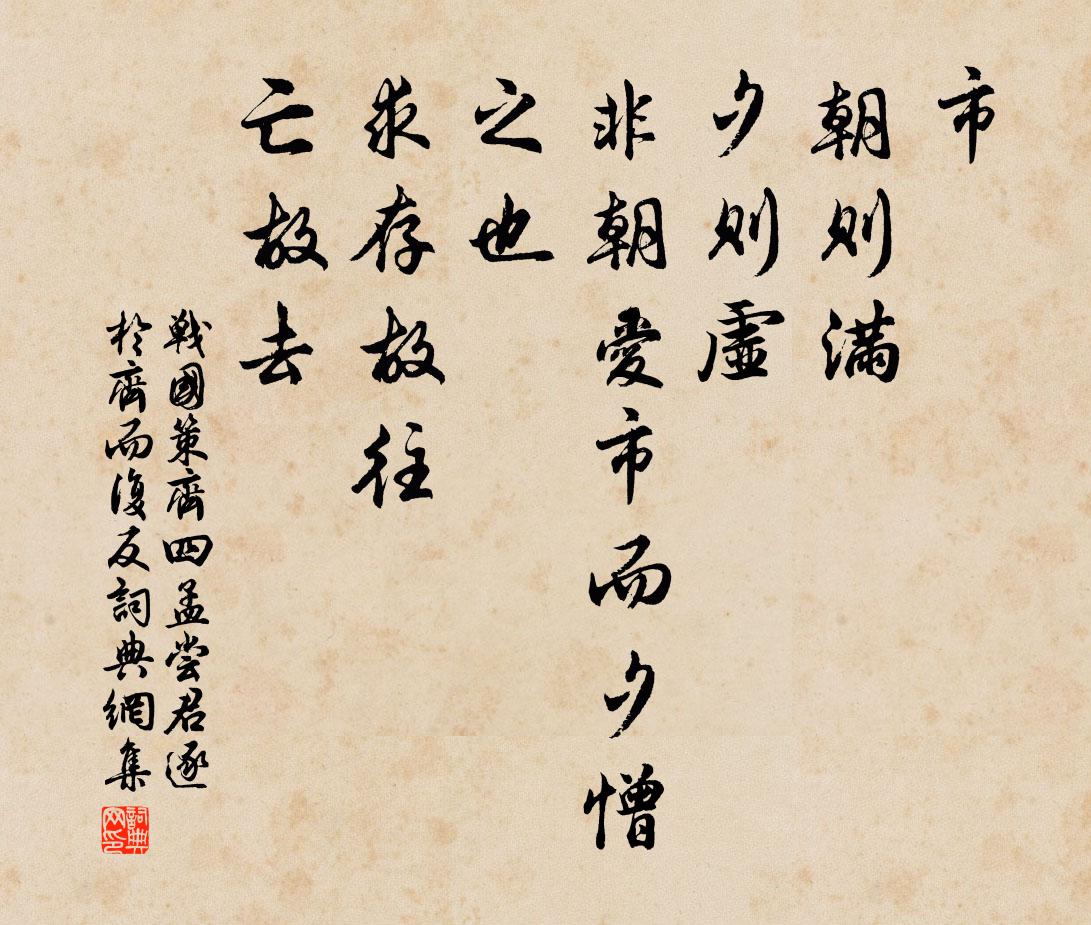 市
朝則滿
夕則虛
非朝愛市而夕憎
之也
求存故往
亡故去
戰國策齊四孟嘗君逐
於齊而復反詞典網集
詞典
网印